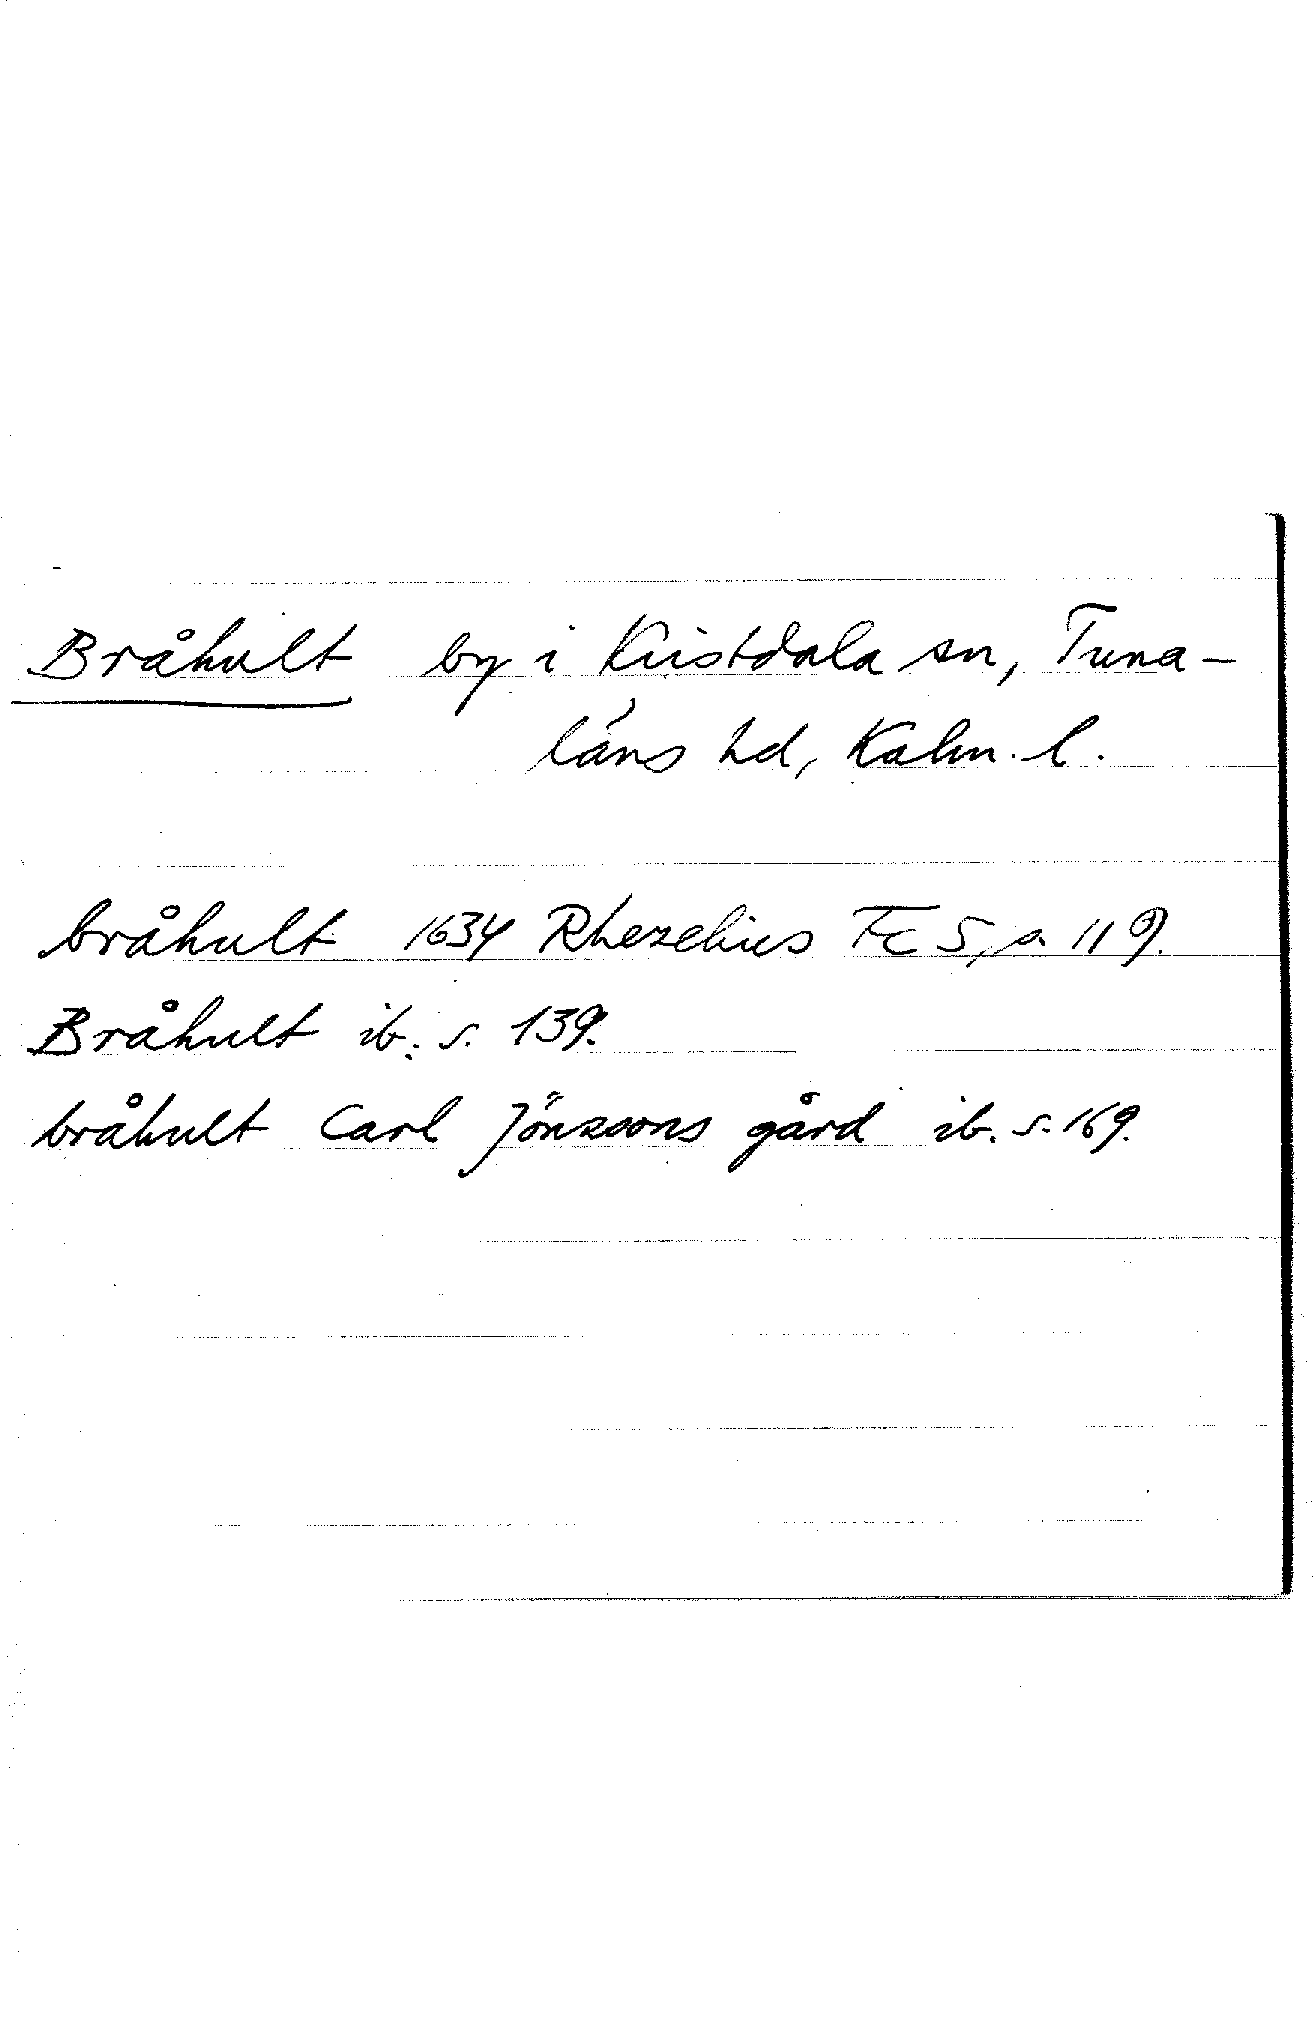 Bråhult by i Kristdala sn, Tuna-
läns hd, Kalm. l.
bråhult 1634 Rhezelius Fc 5, s. 119.
Bråhult ib. s. 139.
bråhult Carl Jönszons gård ib. s. 169.